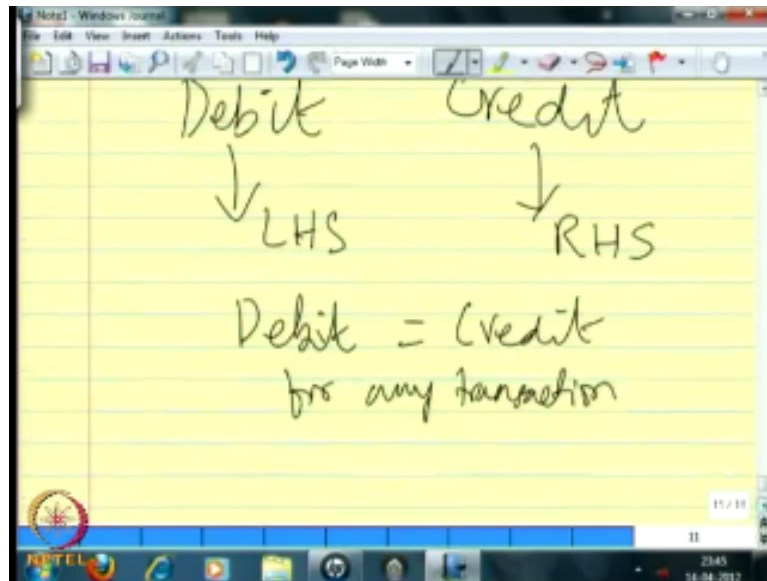 Note1 - Windows Journal
File Edit View Insert Actions Tools Help
Page Width
Debit Credit
LHS RHS
Debit = Credit
for any transaction
11 / 11
11
NPTEL
23:45
14-04-2012